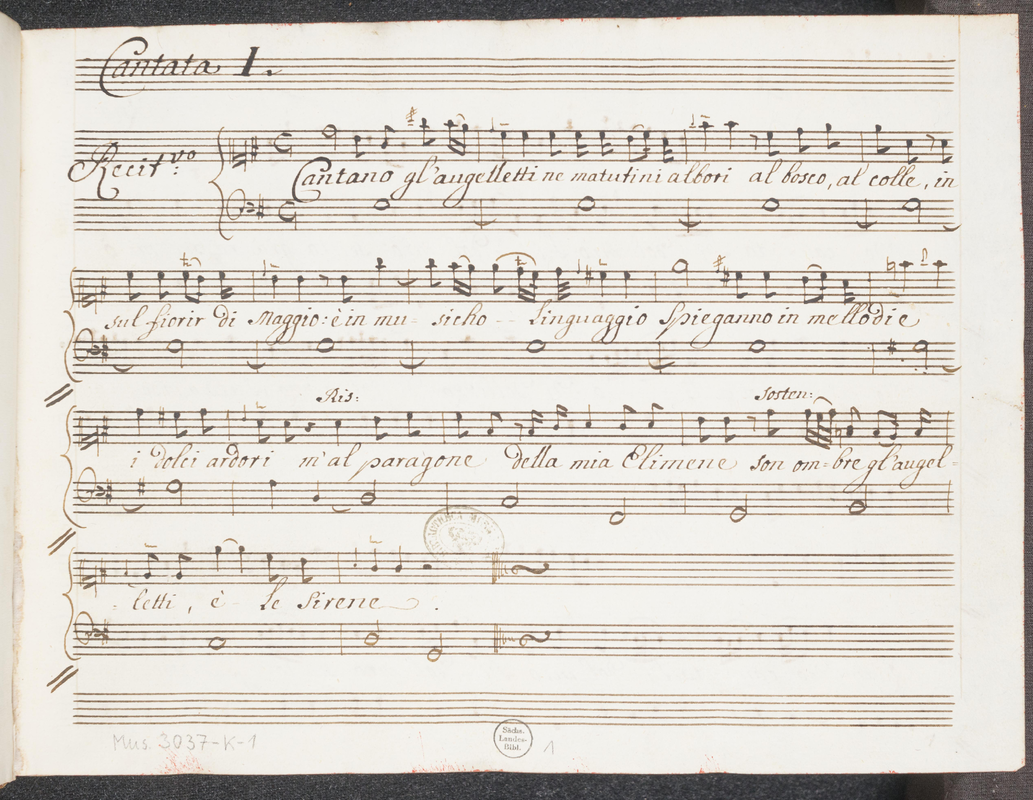 Cantata 1.
Recit:vo
Cantano gl'augelletti ne matutini albori al bosco, al colle, in
sul fiorir di Maggio: è in mu-sicho - Linguaggio Spieganno in mellodie
Ris: sosten:
i dolci ardori m'al paragone della mia Elimene son om=bre gl'augel=
=letti, è - le Sirene.
Mus. 3037-K-1
Sächs.
Landes-
Bibl.
1